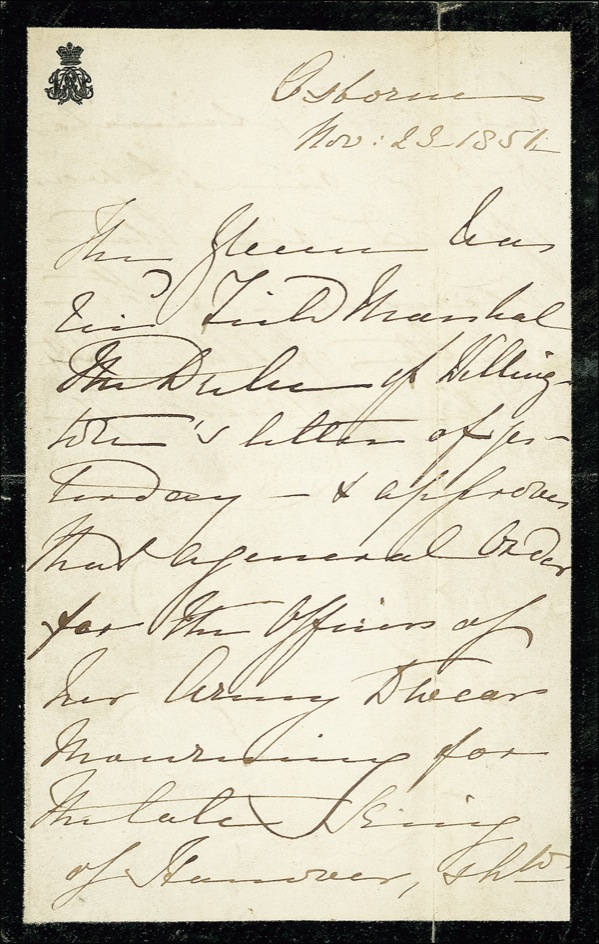 Osborne
Nov: 23 1851.
The Queen has
rec^d Field Marshal
The Duke of Welling-
ton's letter of yes-
terday – & approves
that a general Order
for the Officers of
her Army to wear
Mourning for
the late King
of Hanover, sh^d